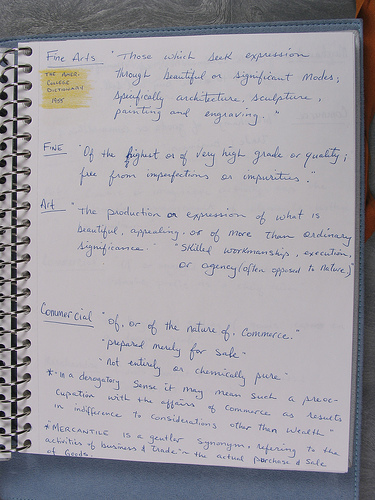 Fine Arts "Those which seek expression
THE AMER.
COLLEGE
DICTIONARY
1955
through beautiful or significant modes;
specifically architecture, sculpture,
painting and engraving."
FINE "Of the highest or of very high grade or quality;
free from imperfections or impurities."
Art "The production or expression of what is
beautiful, appealing, or of more than ordinary
significance." "skilled workmanship, execution,
or agency (often opposed to nature)"
Commercial "of, or of the nature of, commerce."
"prepared merely for sale"
"not entirely or chemically pure"
* "in a derogatory sense it may mean such a preoc-
cupation with the affairs of commerce as results
in indifference to considerations other than wealth"
* MERCANTILE is a gentler synonym, referring to the
activities of business & trade in the actual purchase & sale
of goods.